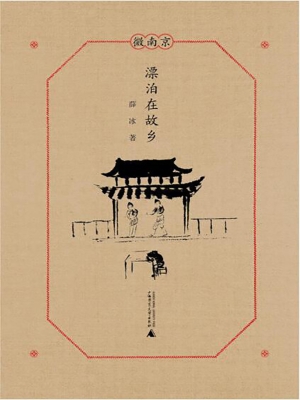 微南京
漂泊在故乡
薛冰 著